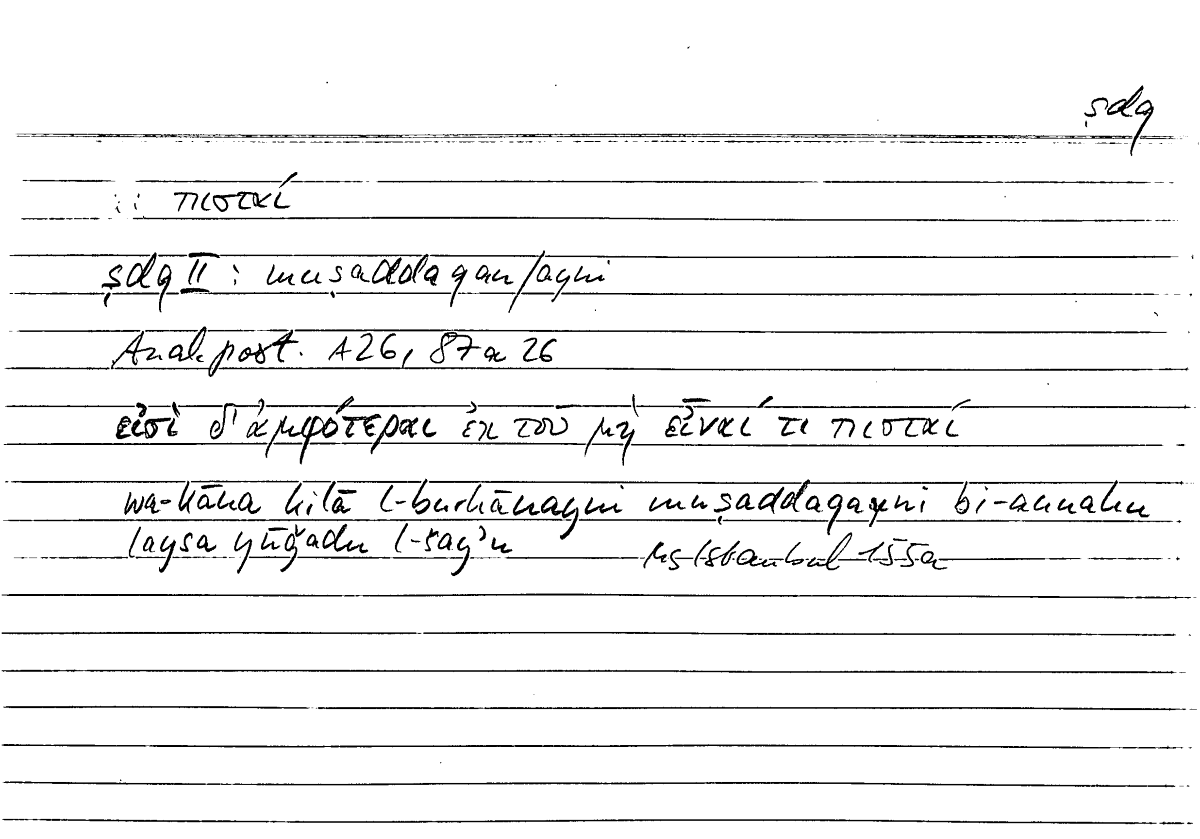 ṣdq
:: πισταί
ṣdq II : muṣaddaqan/ayni
Anal. post. A26, 87a 26
εἰσὶ δ' ἀμφότεραι ἐκ τοῦ μὴ εἶναί τι πισταί
wa-kāna kilā l-burhānayni muṣaddaqayni bi-annahu
laysa yūǧadu l-šayʾu Ms Istanbul 155a